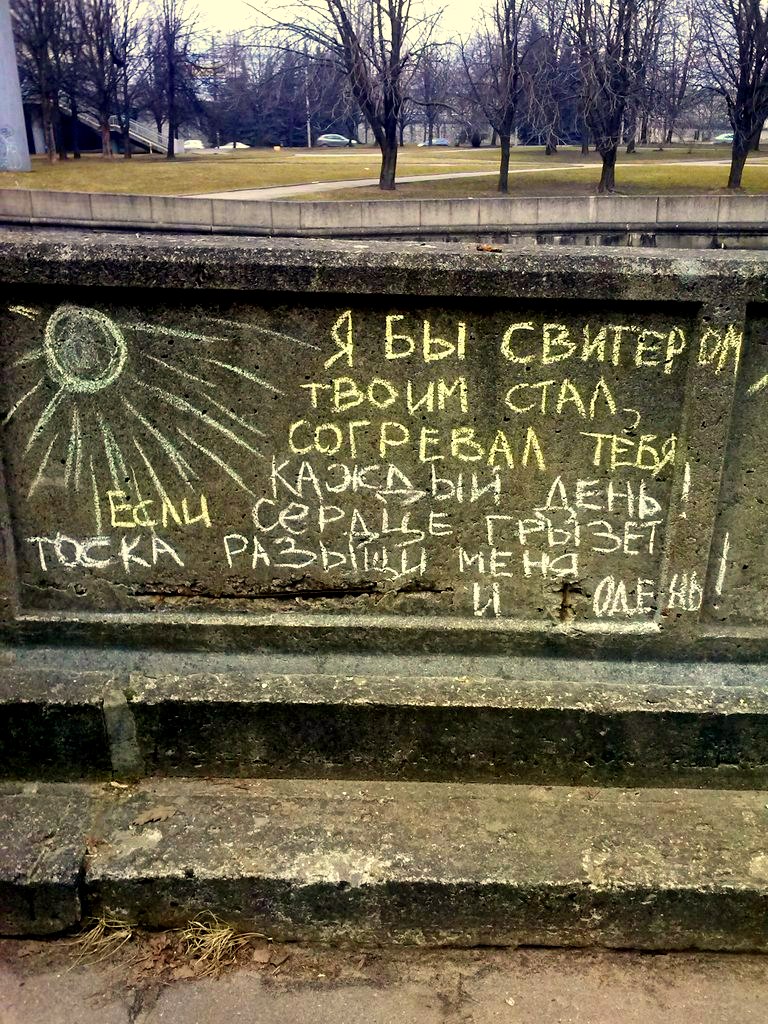 Я БЫ СВИТЕРОМ
ТВОИМ СТАЛ,
СОГРЕВАЛ ТЕБЯ
КАЖДЫЙ ДЕНЬ!
ЕСЛИ СЕРДЦЕ ГРЫЗЕТ
ТОСКА РАЗЫЩИ МЕНЯ
И ОДЕНЬ!